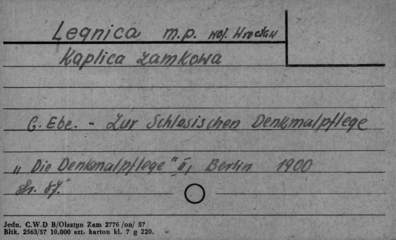 Legnica m.p. woj. Wrocław
Kaplica zamkowa
G. Ebe. - Zur Schlesischen Denkmalpflege
„Die Denkmalpflege" II, Berlin 1900
str. 87.
Jedn. C.W.D B/Olsztyn Zam 2776 /on/ 57
Bltk. 2563/57 10.000 szt. karton kl. 7 g 220.